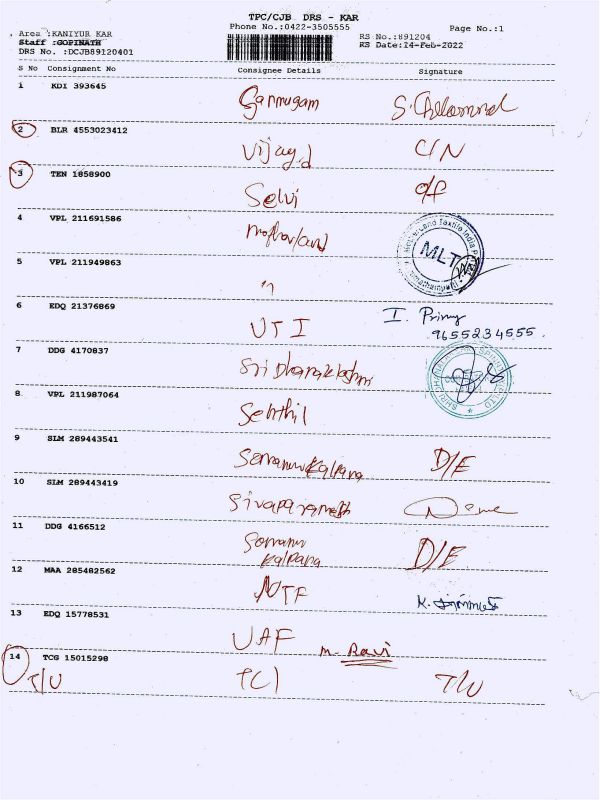 TPC/CJB DRS - KAR
Phone No.:0422-3505555 Page No.:1
Area :KANIYUR KAR RS No.:891204
Staff :GOPINATH RS Date:14-Feb-2022
DRS No. :DCJB89120401
S No Consignment No Consignee Details Signature
1 KDI 393645
2 BLR 4553023412
C/N
3 TEN 1858900
Selvi
4 VPL 211691586
MLT
5 VPL 211949863
"
6 EDQ 21376869
UTI I. Primy
9655234555
7 DDG 4170837
8 VPL 211987064
Senthil
9 SLM 289443541
Somanur Kalpana D/E
10 SLM 289443419
11 DDG 4166512
Somanur
Kalpana D/E
12 MAA 285482562
NTF
13 EDQ 15778531
UAF M. Ravi
14 TCG 15015298
T/U TCI T/U